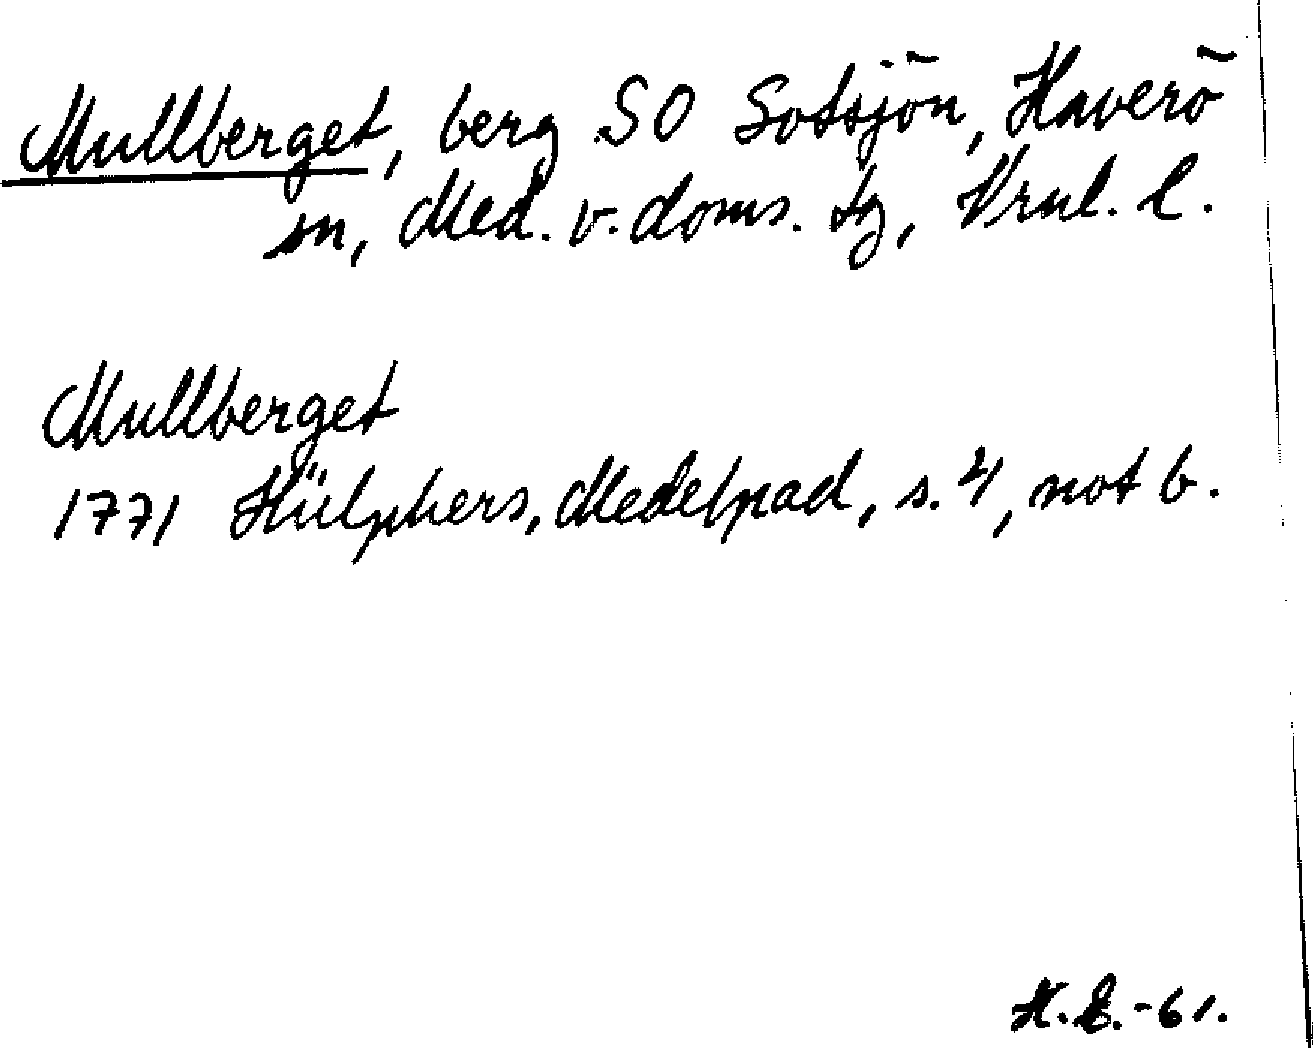 Mullberget, berg SO Sotsjön, Haverö
sn, Med. v. doms. tg, Vrnl. l.
Mullberget
1771 Hülphers, Medelpad, s. 4, not b.
K.E.-61.